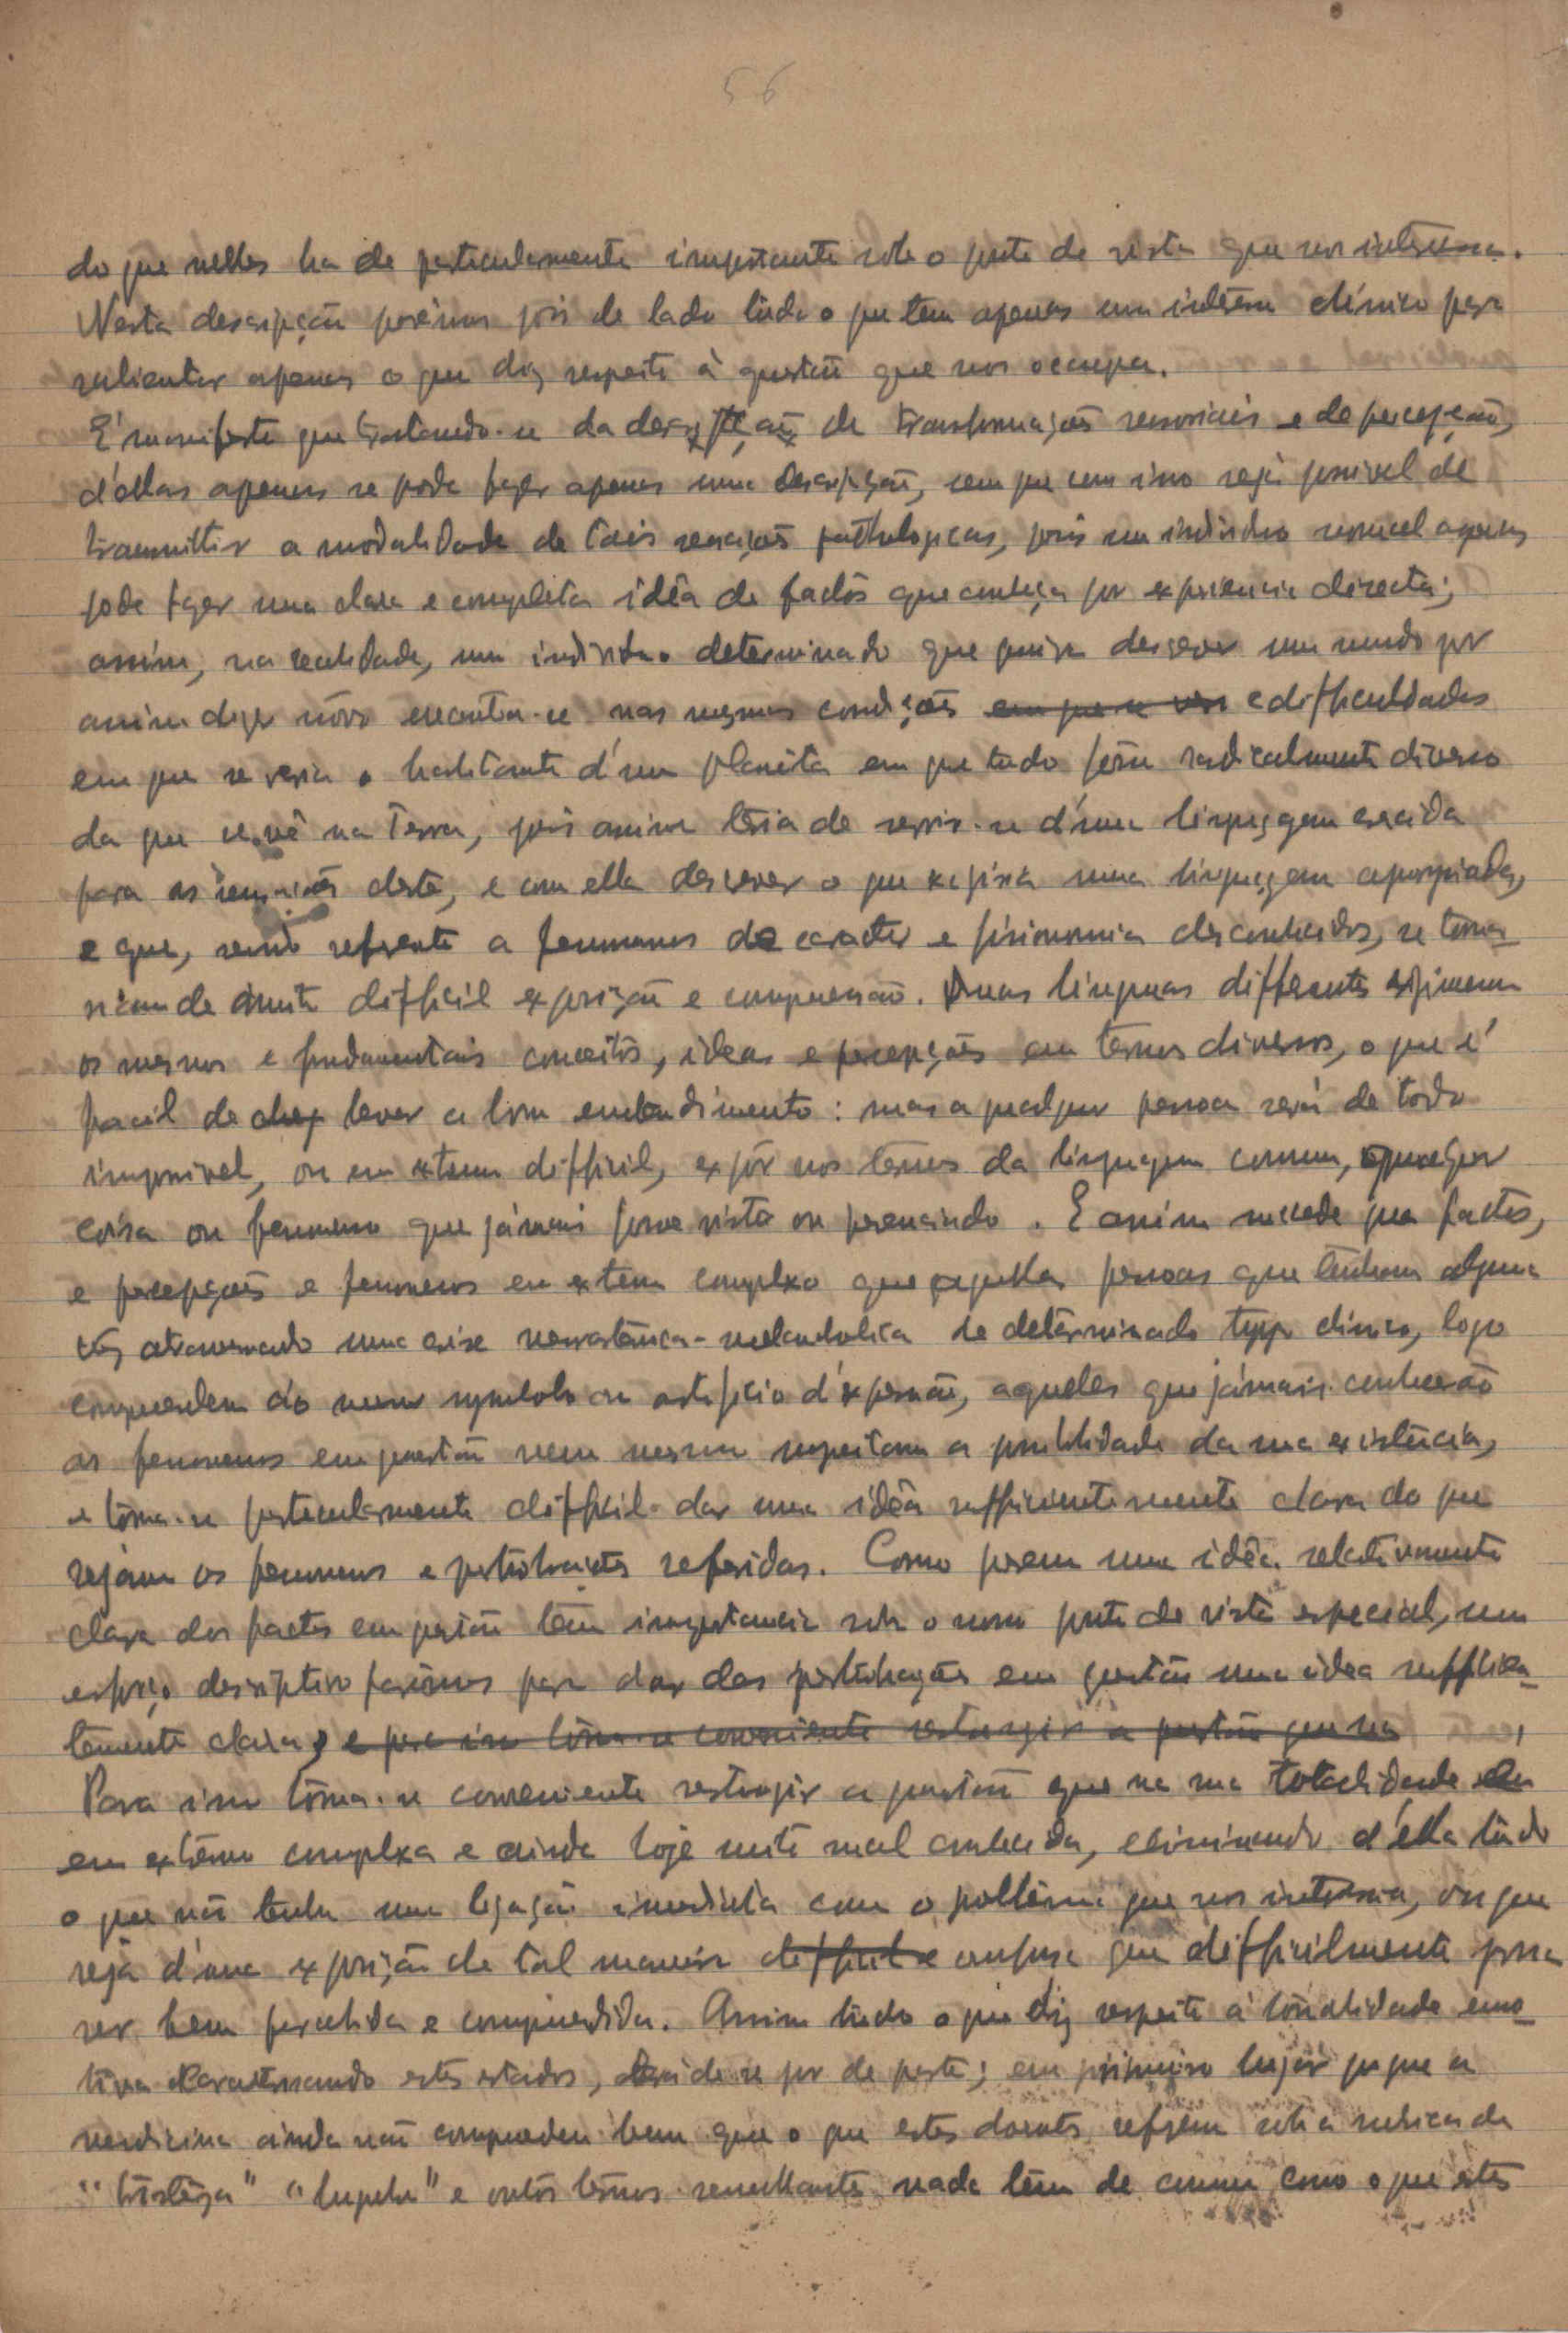 56
do que nelles ha de particularmente importante sob o ponto de vista que nos interessa.
Nesta descripção porêmos pois de lado tudo o que tem apenas um interesse clinico para
salientar apenas o que diz respeito à questão que nos occupa.
E' manifesto que tratando-se da descripção de transformações sensoriais e de percepção,
d'ellas apenas se pode fazer apenas uma descripção, sem que com isso seja possivel de
transmittir a modalidade de taes sensações pathologicas, pois um individuo normal apenas
pode fazer uma clara e completa idêa de factos que conheça por experiencia directa;
assim, na realidade, um individuo determinado que queira descrever um mundo por
assim dizer nôvo encontra-se nas mesmas condições em que se vê e difficuldades
em que se veria o habitante d'um planeta em que tudo fôsse radicalmente diverso
do que se vê na Terra, pois assim teria de servir-se d'uma linguagem creada
para as sensações desta, e com ella descrever o que exigiria uma linguagem apropriada,
e que, sendo referente a fenomenos de caracter e fisionomia desconhecidos, se torna-
riam de muito difficil exposição e compreensão. Duas linguas differentes exprimem
os mesmos e fundamentais conceitos, ideas e percepções em termos diversos, o que é
facil de levar a bom entendimento: mas a qualquer pessoa será de todo
impossivel, ou em extremo difficil, expôr nos termos da linguagem commum, qualquer
coisa ou fenomeno que jámais fosse visto ou presenciado. E assim succede que factos,
e percepções e fenomenos em extremo complexo que aquellas pessoas que tenham alguma
vez atravessado uma crise neurastenica-melancholica de determinado typo clinico, logo
comprendem ao menor symbolo ou artificio d'expressão, aqueles que jámais conhecerão
os fenomenos em questão nem mesmo suspeitam a possibilidade da sua existência,
e torna-se particularmente difficil dar uma idêa sufficientemente clara do que
sejam os fenomenos e perturbações referidas. Como porem uma idêa relativamente
clara dos factos em questão têm importancia sob o nosso ponto de vista especial, um
esforço descriptivo farêmos para dar das perturbações em questão uma idea sufficien-
temente clara, e para isso torna-se conveniente restringir a questão que na
Para isso torna-se conveniente restringir a questão que na sua totalidade é
em extremo complexa e ainda hoje muito mal conhecida, eliminando d'ella tudo
o que não tenha uma ligação imediata com o problema que nos interessa, ou que
seja d'uma exposição de tal maneira difficil e confusa que difficilmente possa
ser bem percebida e comprendida. Assim tudo o que diz respeito à tonalidade emo-
tiva caracterisando estes estados, deverá de se pôr de parte; em primeiro lugar porque a
medicina ainda não comprendeu bem que o que estes doentes referem sob a rubrica de
"tristeza" "angustia" e outros termos semelhantes nada têm de commum com o que estes